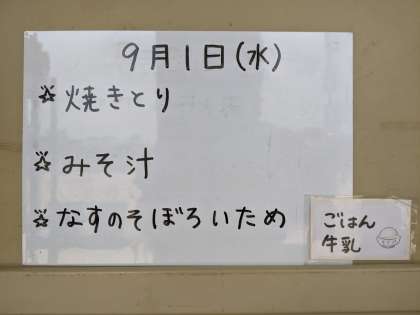 9月1日(水)
☆焼きとり
☆みそ汁
☆なすのそぼろいため
ごはん
牛乳